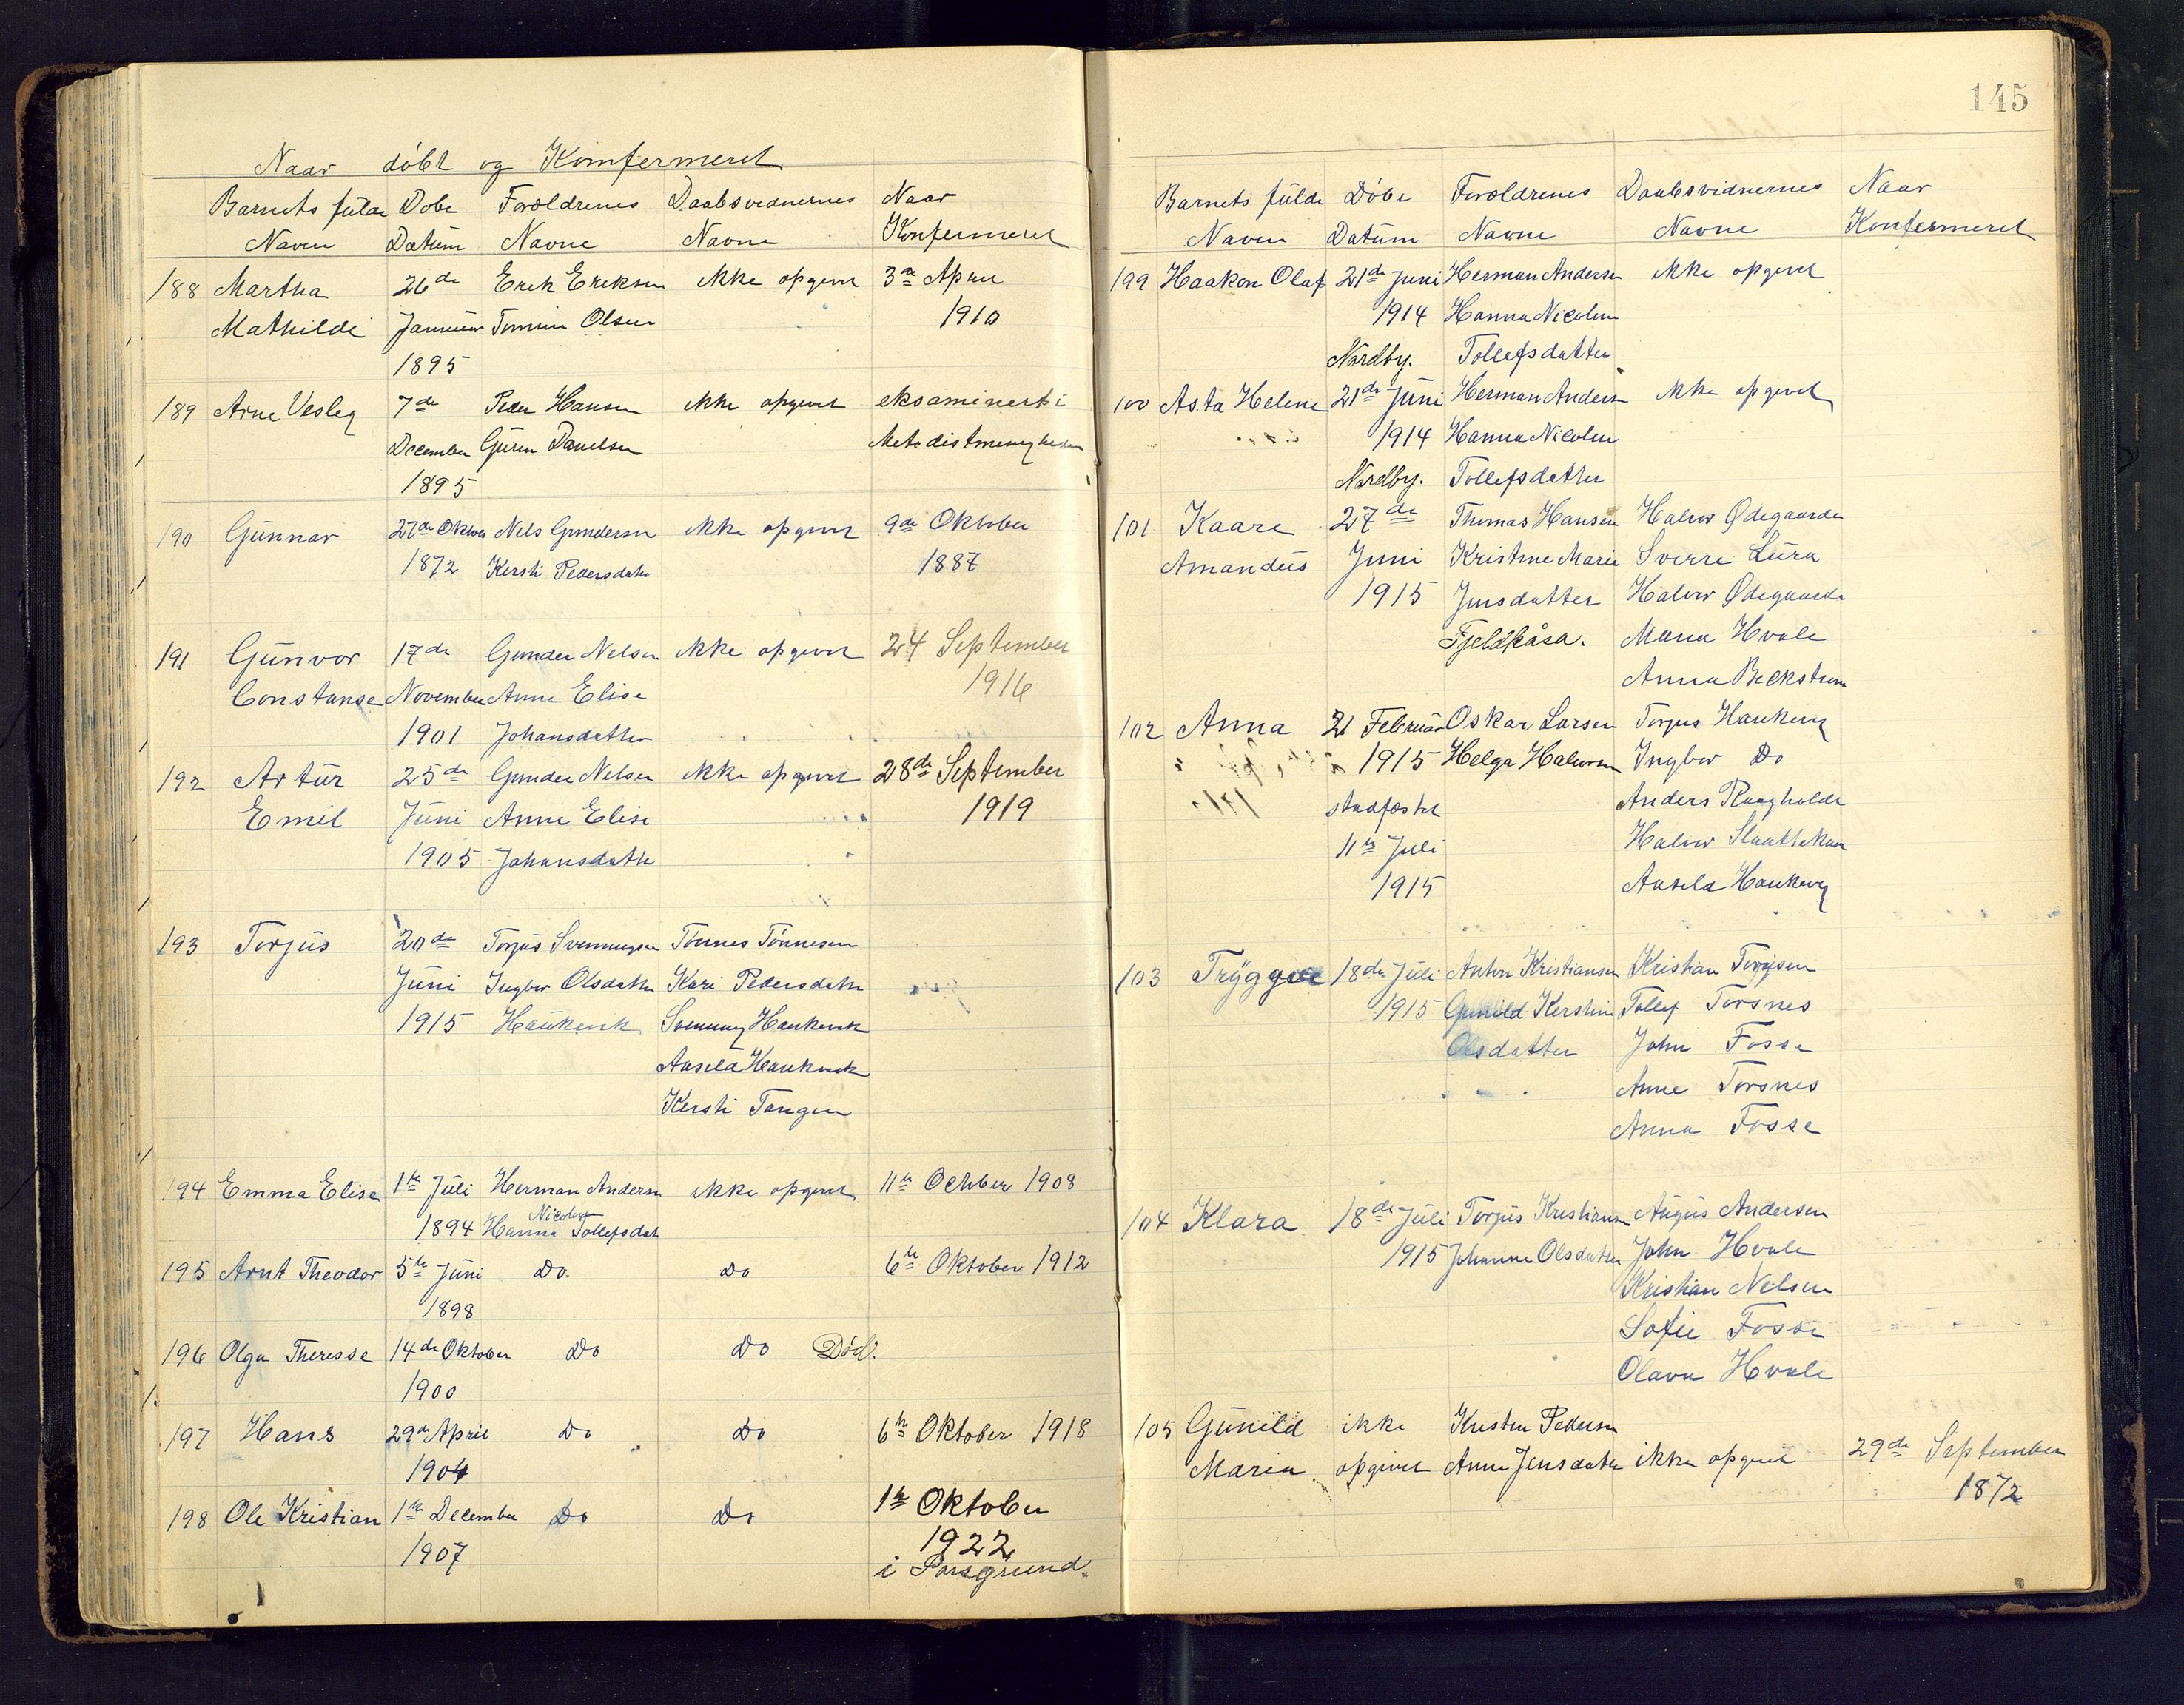 Naar döbt og Komfermeret
Barnets fulde Döbe Foroldrenes Daabsvidnernes Naar
Navn Datum Navne Navne Konfermeret
188 Martha 26de Erik Eriksen ikke opgivet 3de April
Mathilde Januar Olsen 1910
1895
189 Arne Vesley 7de Peder Hansen ikke opgivet eksaminert i
December Guren Danielsen Metodistmenigheden
1895
190 Gunnar 27de Oktober Nels Gundersen ikke opgivet 9de Oktober
1872 Kersti Pedersdatter 1887
191 Gunvor 17de Gunder Nelsen ikke opgivet 24 September
Constanse November Anne Elise 1916
1901 Johansdatter
192 Artur 25de Gunder Nelsen ikke opgivet 28de September
Emil Juni Anne Elise 1919
1905 Johansdatter
193 Torjus 20de Torjus Svenningsen Tönnes Tönnesen
Juni Ingbor Olsdatter Kari Pedersdatter
1915 Haukenk Svenning Haukenk
Aasela Haukenk
Kersti Tangen
194 Emma Elise 1te Juli Herman Andersen ikke opgivet 11te October 1908
Nicoline
1894 Hanna Tollefsdat
195 Arnt Theodor 5te Juni Do. Do 6te Oktober 1912
1898
196 Olga Theresse 14de Oktober Do Do Död.
1900
197 Hans 29de April Do Do 6te Oktober 1918
1904
198 Ole Kristian 1te December Do Do 1te Oktober
1907 1922
i Porsgrund.
145
Barnets fulde Döbe Foroldrenes Daabsvidnernes Naar
Navn Datum Navne Navne Konfermeret
199 Haakon Olaf 21de Juni Herman Andersen ikke opgivet
1914 Hanna Nicoline
Nordby. Tollefsdatter
100 Asta Helene 21de Juni Herman Andersen ikke opgivet
1914 Hanna Nicoline
Nordby. Tollefsdatter
101 Kaare 27de Thomas Hansen Halvor Ødegaarden
Amandus Juni Kristine Marie Sverre Lura
1915 Jensdatter Halvor Ødegaarden
Fjeldkåsa. Maria Hvale
Anna Beckstrøm
102 Anna 21 Februar Oskar Larsen Torjus Haukenk
1915 Helga Halvorsen Ingbor Do
stadfæstet Anders Raagholdt
11te Juli Halvor
1915 Aasela Haukenk
103 Tryggve 18de Juli Anton Kristiansen Kristian Torjusen
1915 Gunild Kerstine Tollef Torsnes
Olsdatter John Fosse
Anne Torsnes
Anna Fosse
104 Klara 18de Juli Torjus Kristiansen August Andersen
1915 Johanne Olsdatter John Hvale
Kristian Nelsen
Sofie Fosse
Olava Hvale
105 Gunild ikke Kristen Pedersen
Maria opgivet Anne Jensdatter ikke opgivet 29de September
1872